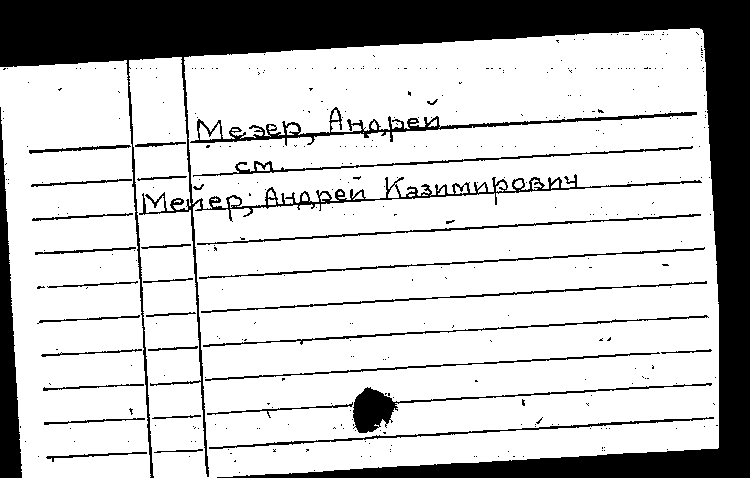 Мезер, Андрей
см.
Мейер, Андрей Казимирович